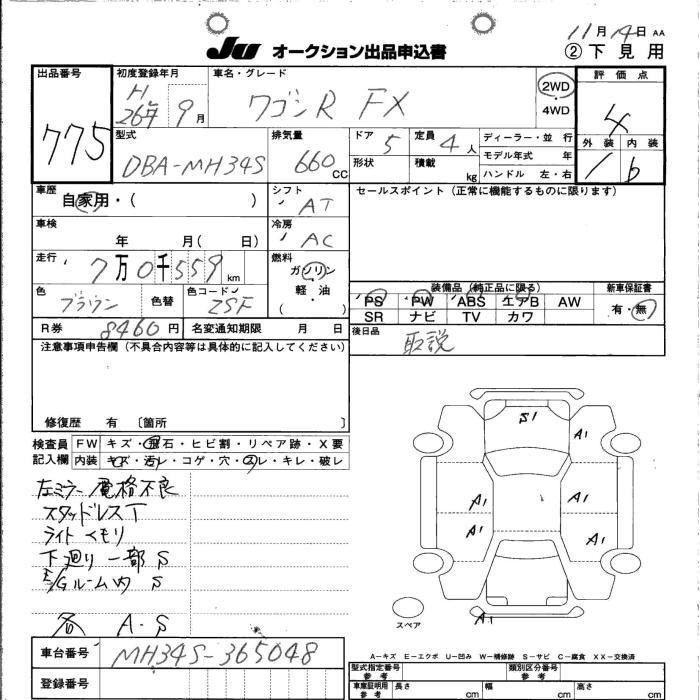 11月14日 AA
JU オークション出品申込書 ②下見用
出品番号 初度登録年月 車名・グレード 評価点
775 H26年9月 ワゴンR FX 2WD 4WD 4
型式 排気量 ドア 5 定員 4人 ディーラー・並行 外装 内装
DBA-MH34S 660CC 形状 積載 kg モデル年式 年
ハンドル 左・右 1 b
車歴 自家用・( ) シフト AT セールスポイント(正常に機能するものに限ります)
車検 年 月( 日) 冷房 AC
走行 7万0千559km 燃料 ガソリン 軽・油 ( )
装備品(純正品に限る) 新車保証書
色 ブラウン 色替 色コード ZSF
PS PW ABS エアB AW 有・無
SR ナビ TV カワ
R券 8460円 名変通知期限 月 日 後日品 取説
注意事項申告欄(不具合内容等は具体的に記入してください)
修復歴 有 〔箇所 〕
検査員記入欄 FW キズ・飛石・ヒビ割・リペア跡・X要
内装 キズ・汚レ・コゲ・穴・スレ・キレ・破レ
左ミラー電格不良
スタッドレスT
ライトくもり
下廻り一部S
E/Gルーム内 S
各 A・S
S1
A1
A1 A1
A1 A1
A1
スペア
A−キズ E−エクボ U−凹み W−補修跡 S−サビ C−腐食 XX−交換済
車台番号 MH34S-365048
登録番号
型式指定番号 参考 類別区分番号 参考
車庫証明用 参考 長さ cm 幅 cm 高さ cm